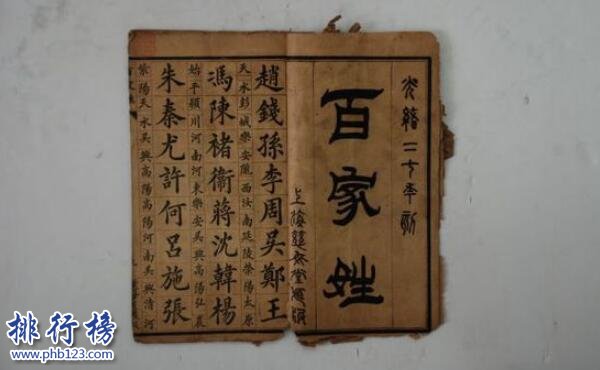 光緒二
百家姓
上海
趙錢孫李周吳鄭王
天水彭城樂安隴西汝南延陵滎陽太原
馮陳褚衛蔣沈韓楊
始平潁川河南河東樂安吳興高陽弘農
朱秦尤許何呂施張
紫陽天水吳興高陽高陽河南吳興清河
排行榜
www.phb123.com